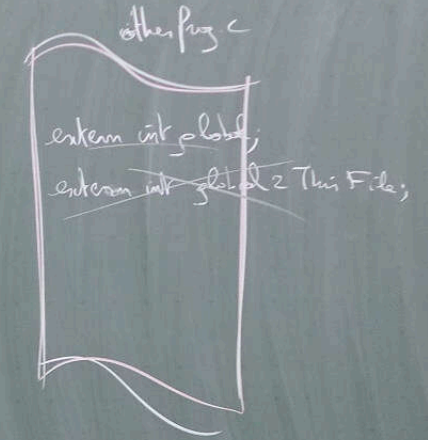 otherProg.c
extern int global;
extern int global2ThisFile;